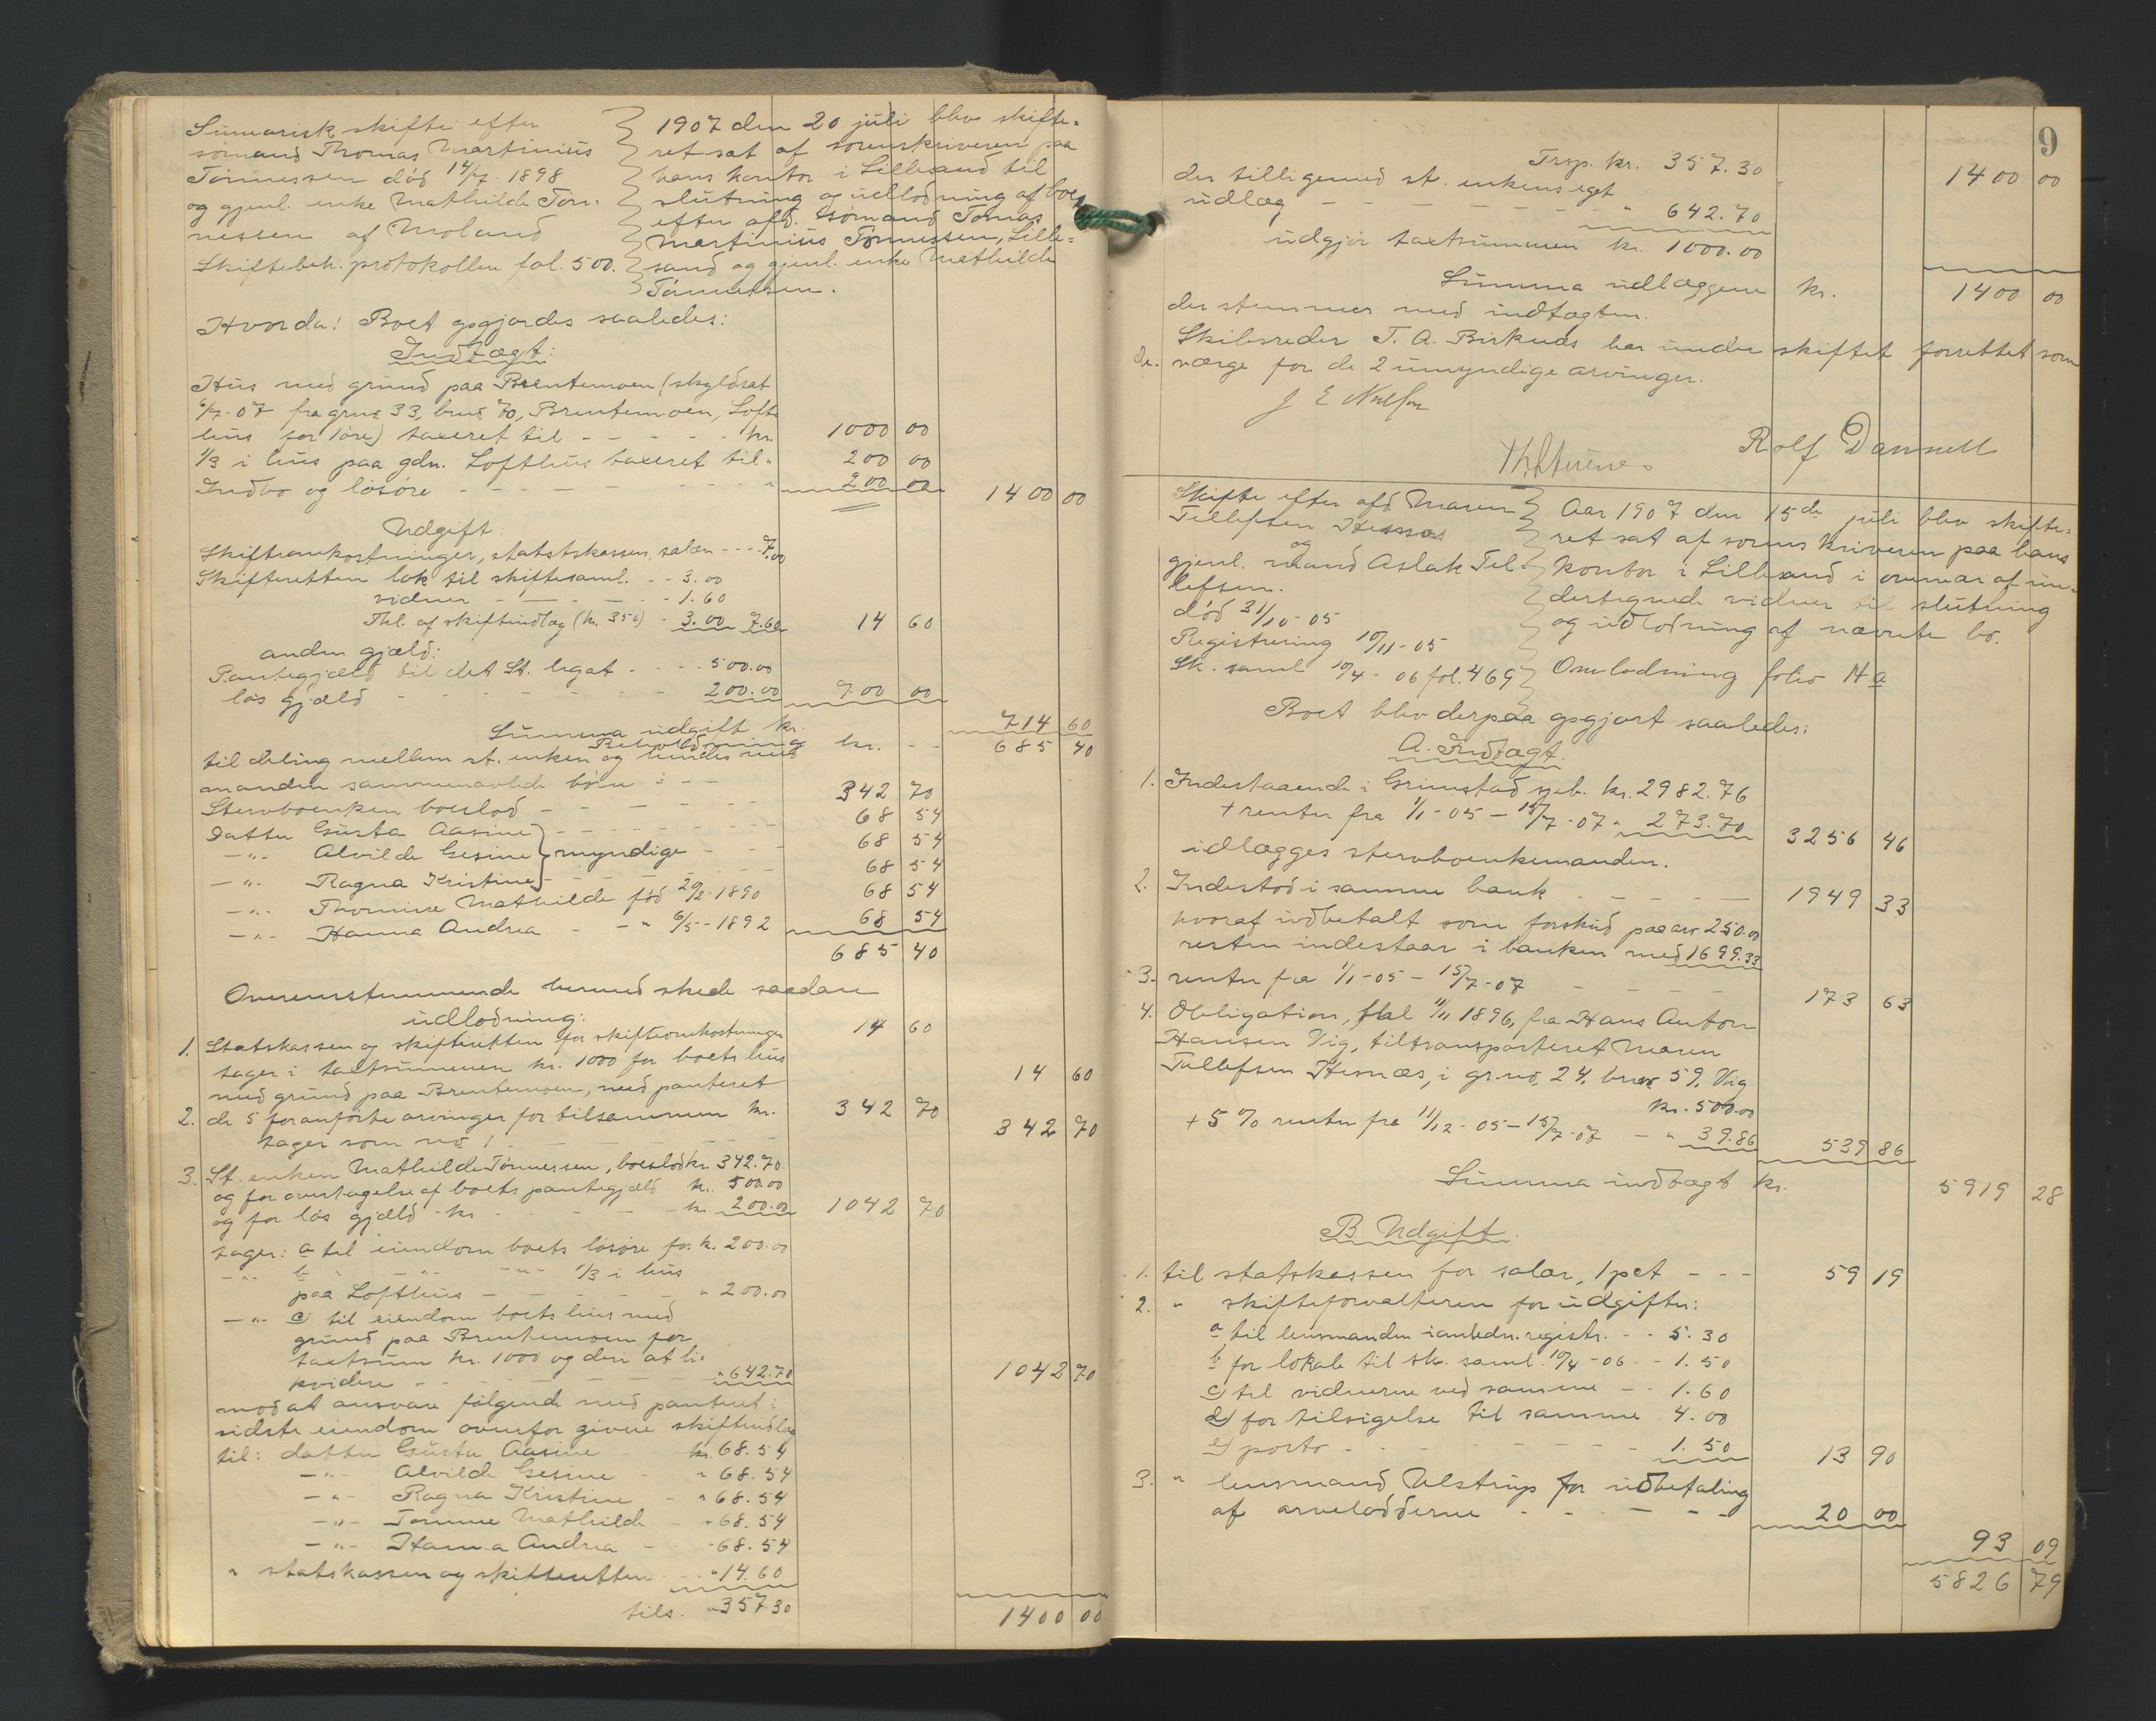 Sumarisk skifte efter
sömand Thomas Martinius
Tönnessen död 14/7. 1898
og gjenl. enke Mathilde Tön-
nessen af Moland
Skiftebeh. protokollen fol. 500.
1907 den 20 juli blev skifte-
ret sat af sorenskriveren paa
hans kontor i Lillesand til
slutning og udlodning af boet
efter afd. sömand Tomas
Martinius Tönnessen, Lille-
sand og gjenl. enke Mathilde
Tönnessen.
Hvorda: Boet opgjordes saaledes:
Indtægt:
Hus med grund paa Brentemoen (skyldsat
6/7-07 fra grno 33, brno 70, Brentemoen, Loft-
hus for 1 öre) taxeret til - - - - - kr. 1000 00
1/3 i hus paa gdn. Lofthus taxeret til " 200 00
Indbo og lösöre - - - - - - " 200 00 1400 00
Udgift.
Skifteomkostninger, statskassen, salær - - - 7.00
Skifteretten lok til skiftesaml. - - 3.00
vidner - - - - - 1.60
Thl. af skifteudlæg (kr. 350) - 3.00 7.60 14 60
anden gjæld:
Pantegjæld til det St. legat - - - 500.00
lös gjæld - - - - - - 200.00 700 00
Summa udgift kr. 714 60
Beholdning kr. - - 685 40
til deling mellem st. enken og hendes med
manden sammenavlede börn: - -
Stervboenken boeslod - - - - - - 342 70
datter Gusta Aasine - - - - - - 68 54
- " - Alvilde Gesine } myndige - - - 68 54
- " - Ragna Kristine - - - - - 68 54
- " - Thomine Mathilde född 29/2-1890 68 54
- " - Hanna Andrea - - " 6/5-1892 68 54
685 40
Overensstemmende hermed skede saadan
udlodning:
1. Statskassen og skifteretten for skifteomkostninger 14 60
tager i taxtsummen kr. 1000 for boets hus
med grund paa Brentemoen, med panteret 14 60
2. de 5 foranförte arvinger for tilsammen kr. 342 70
tager som no 1 - - - - - - 342 70
3. St. enken Mathilde Tönnessen, boeslod kr. 342.70
og for overtagelse af boets pantegjæld kr. 500.00
og for lös gjæld - kr - - - - - kr. 200.00 1042 70
tager: a til eiendom boets lösöre for kr. 200.00
- " - b " - " - - " - 1/3 i hus
paa Lofthus - - - - - - " 200.00
- " - c) til eiendom boets hus med
grund paa Brentemoen for
taxtsum kr. 1000 og deri at li-
kvidere - - - - - - " 642.70 1042 70
mod at ansvare fölgende med panteret i
sidste eiendom ovenfor givne skifteudlæg
til: datter Gusta Aasine - kr. 68.54
- " - Alvilde Gesine - " 68.54
- " - Ragna Kristine - " 68.54
- " - Tomine Mathilde - " 68.54
- " - Hanna Andrea - " 68.54
" statskassen og skifteretten - " 14.60
tils. " 357.30 1400 00
9
Trsp. kr. 357.30 1400 00
der tilligemed st. enkens eget
udlæg - - - - - - - " 642.70
udgjör taxtsummen kr. 1000.00
Summa udlæggene kr. 1400 00
der stemmer med indtægten.
Skibsreder T. A. Birknes har under skiftet forrettet som
værge for de 2 umyndige arvinger.
Rolf Dannell
Skifte efter afd. Maren
Tellefsen Hesnæs
og
gjenl. mand Aslak Tel-
lefsen.
död 31/10-05
Registrering 10/11-05
Sk. saml 10/4-06 fol. 469
Aar 1907 den 15de juli blev skifte-
ret sat af sorenskriveren paa hans
kontor i Lillesand i overvær af un-
dertegnede vidner til slutning
og udlodning af nævnte bo.
Omlodning folio 14 a
Boet blev derpaa opgjort saaledes:
A. Indtægt.
1. Indestaaende i Grimstad spb. kr. 2982.76
+ renter fra 1/1-05 - 15/7-07 " 273.70 3256 46
udlægges stervboenkemanden.
2. Indestod i samme bank - - - - - 1949 33
hvoraf udbetalt som forskud paa arv 250.00
resten indestaar i banken med 1699.33
3. renter fra 1/1-05 - 15/7-07 - - - - 173 63
4. Obligation, thl 11/11 1896, fra Hans Anton
Hansen Vig, tiltransporteret Maren
Tellefsen Hesnæs, i grno. 24. brno 59. Vig
kr. 500.00
+ 5 % renter fra 11/12-05 - 15/7-07 - " 39.86 539 86
Summa indtægt kr. 5919 28
B. Udgift.
1. til statskassen for salær, 1 pct - - - 59 19
2. " skifteforvalteren for udgifter:
a til lensmanden i anledn. registr. - - 5.30
b for lokale til sk. saml. 10/4-06 - - 1.50
c) til vidnerne ved samme - - 1.60
d) for tilsigelse til samme 4.00
e) porto - - - - - - - 1.50 13 90
3. " lensmand Ulstrup for udbetaling
af arvelodderne - - - - - 20 00
93 09
5826 79